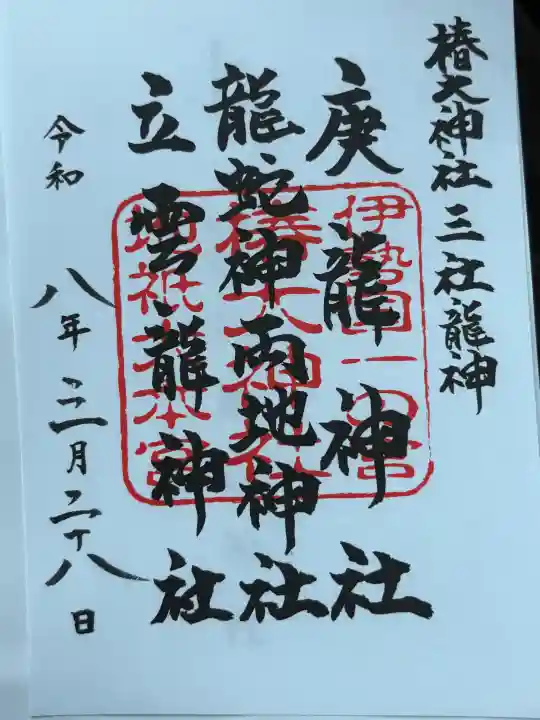 椿大神社三社龍神
庚龍神社
龍蛇神両地神社
立雲龍神社
令和八年三月二十八日
伊勢国一宮
椿大神社
地祇大本宮